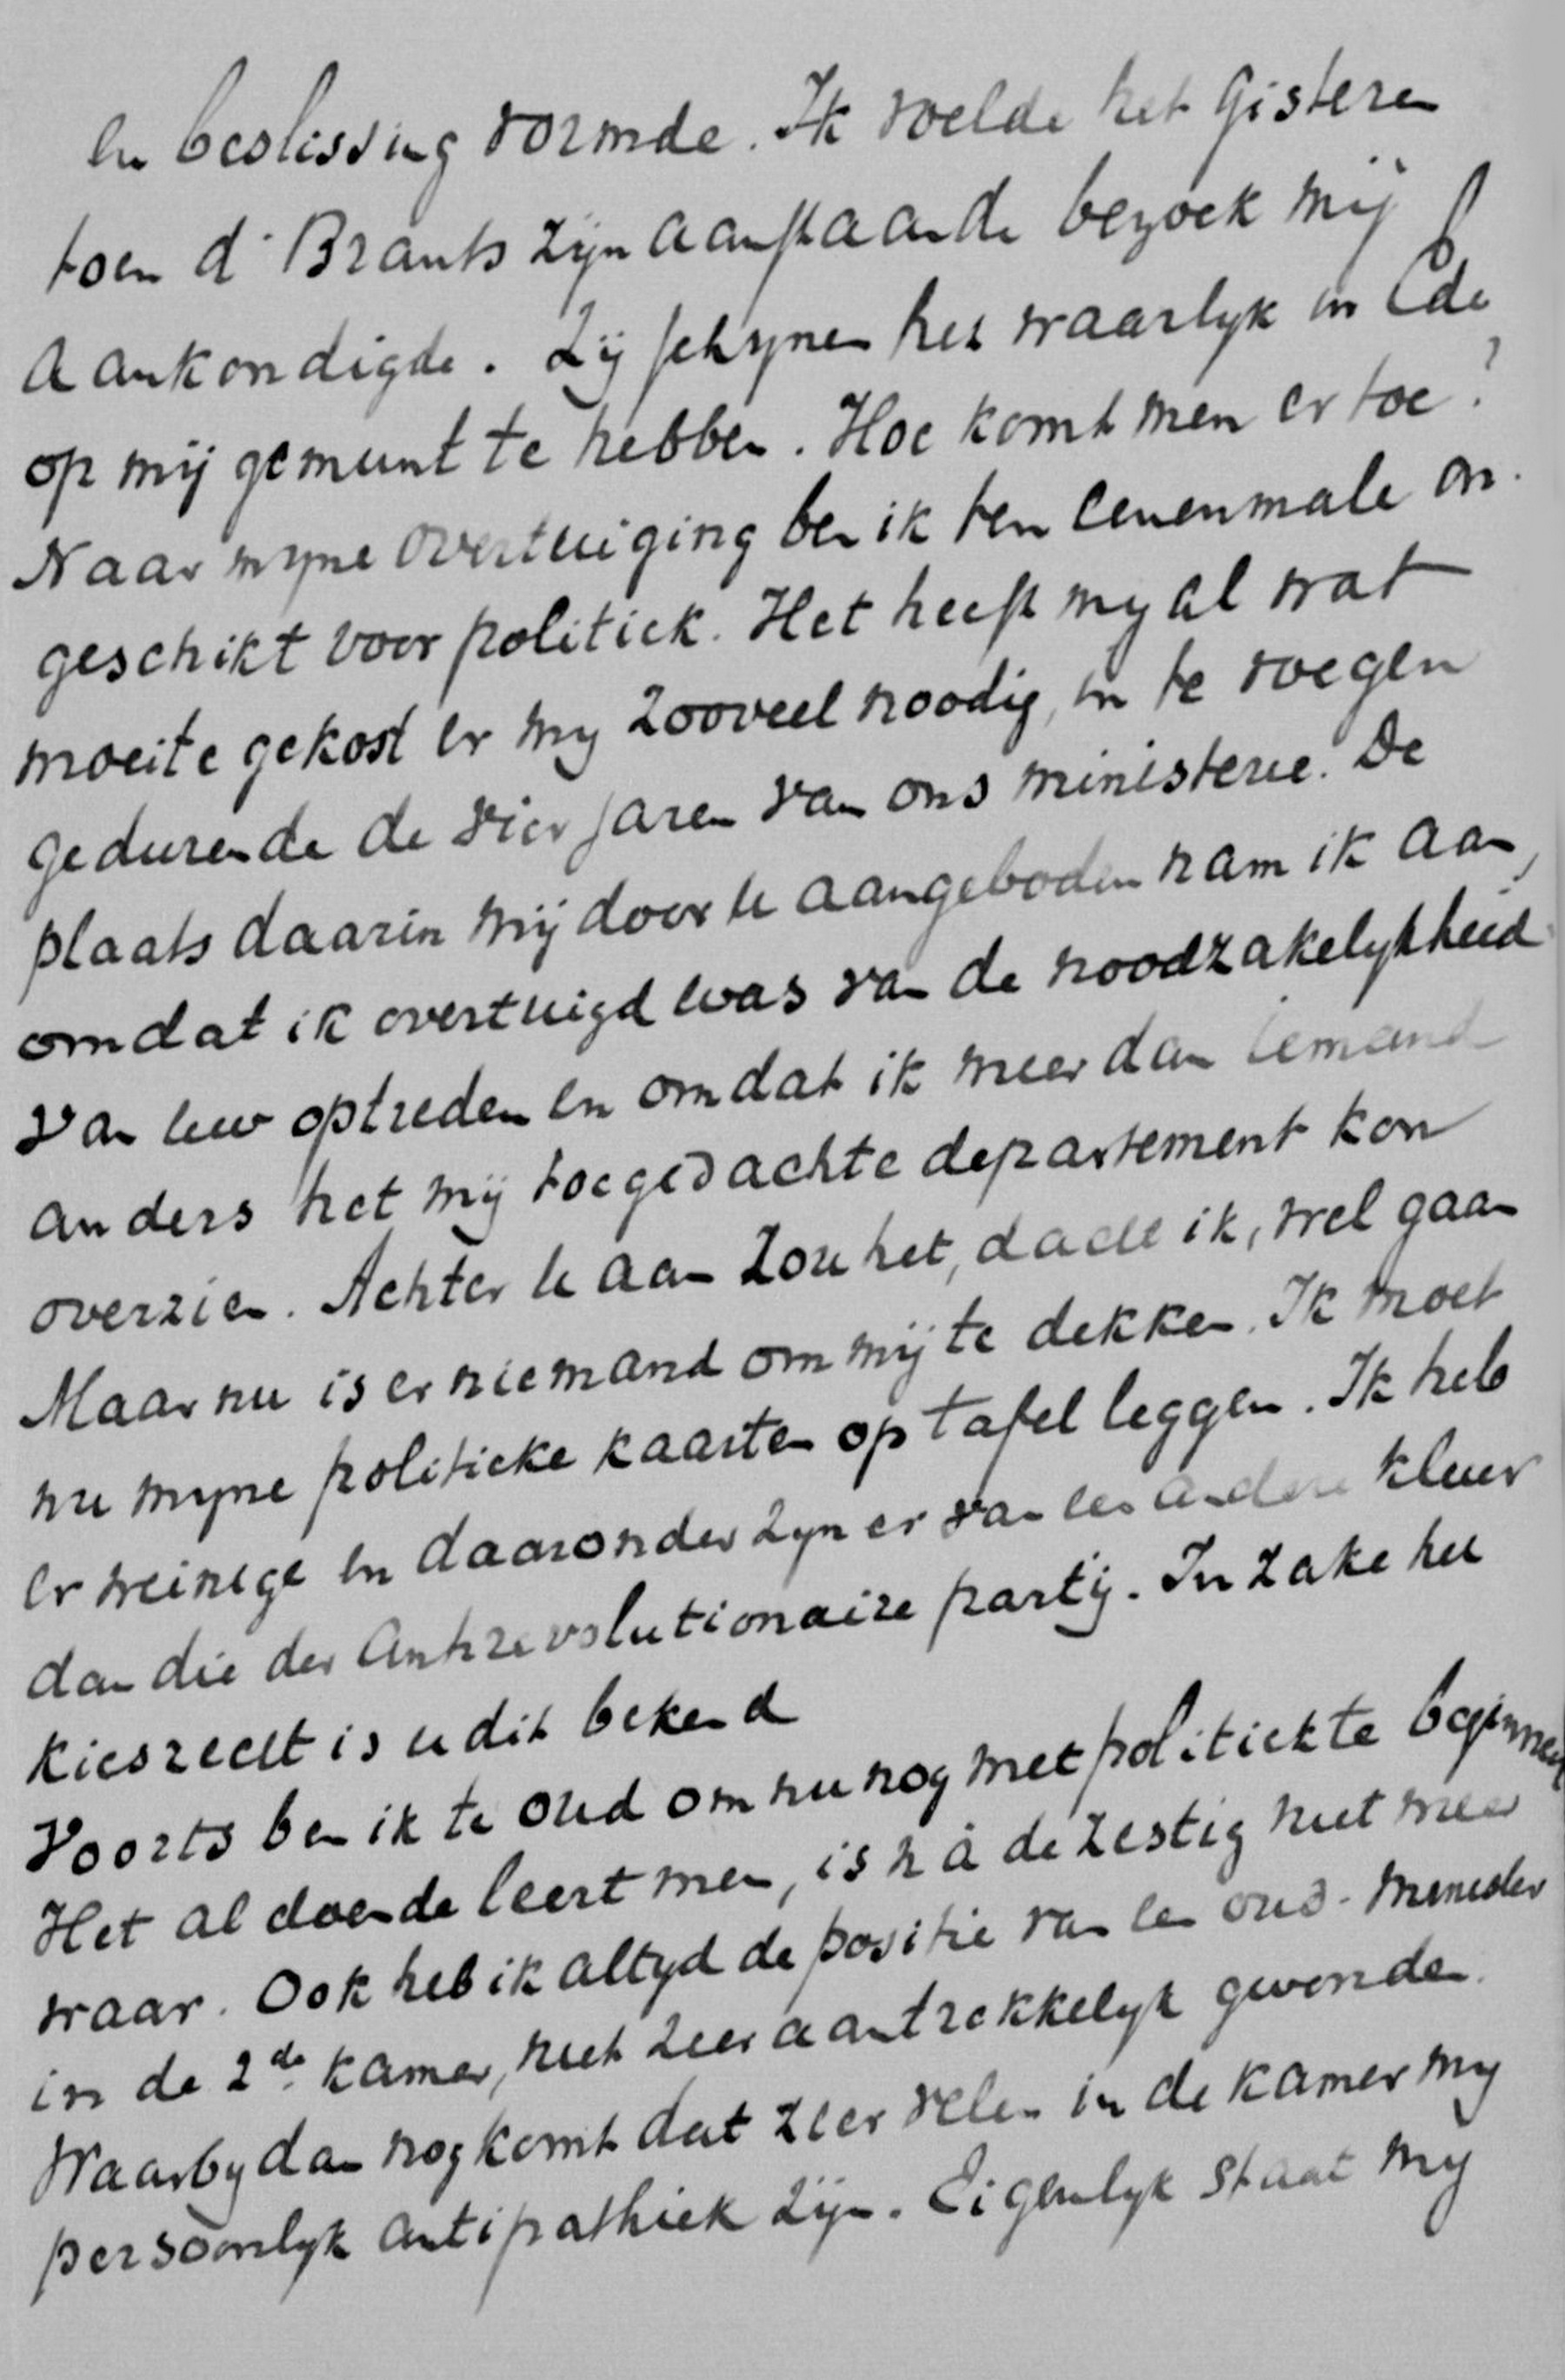 en beslissing vormde. Ik voelde het gisteren
toen dr Brants zijn aanstaande bezoek mij
aankondigde. Zij schynen het waarlyk in Ede
op mij gemunt te hebben. Hoe komt men er toe?
Naar myne overtuiging ben ik ten eenenmale on-
geschikt voor politiek. Het heeft my al wat
moeite gekost er my zooveel noodig, in te voegen
gedurende de vier jaren van ons ministerie. De
plaats daarin mij door U aangeboden nam ik aan,
omdat ik overtuigd was van de noodzakelykheid
van uw optreden en omdat ik meer dan iemand
anders het mij toegedachte departement kon
overzien. Achter U aan zou het, dacht ik, wel gaan
Maar nu is er niemand om mij te dekken. Ik moet
nu myne politieke kaarten op tafel leggen. Ik heb
er weinige en daaronder zyn er van een andere kleur
dan die der Antirevolutionaire partij. In zake het
kiesrecht is u dit bekend
Voorts ben ik te oud om nu nog met politiek te beginnen
Het al doende leert men, is ná de zestig niet meer
waar. Ook heb ik altyd de positie van een oud-minister
in de 2de kamer, niet zeer aantrekkelyk gevonden.
Waarby dan nog komt dat zeer velen in de kamer my
persoonlyk antipathiek zijn. Eigenlyk staat my